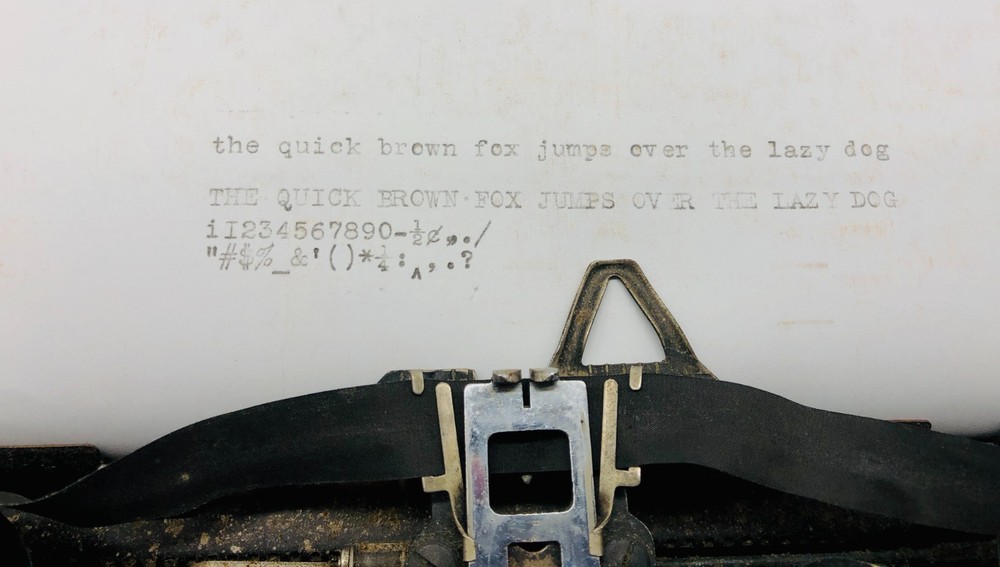 the quick brown fox jumps over the lazy dog
THE QUICK BROWN FOX JUMPS OVER THE LAZY DOG
iI234567890-½¢,,./
"#$%_&'()*¼:‸,.?